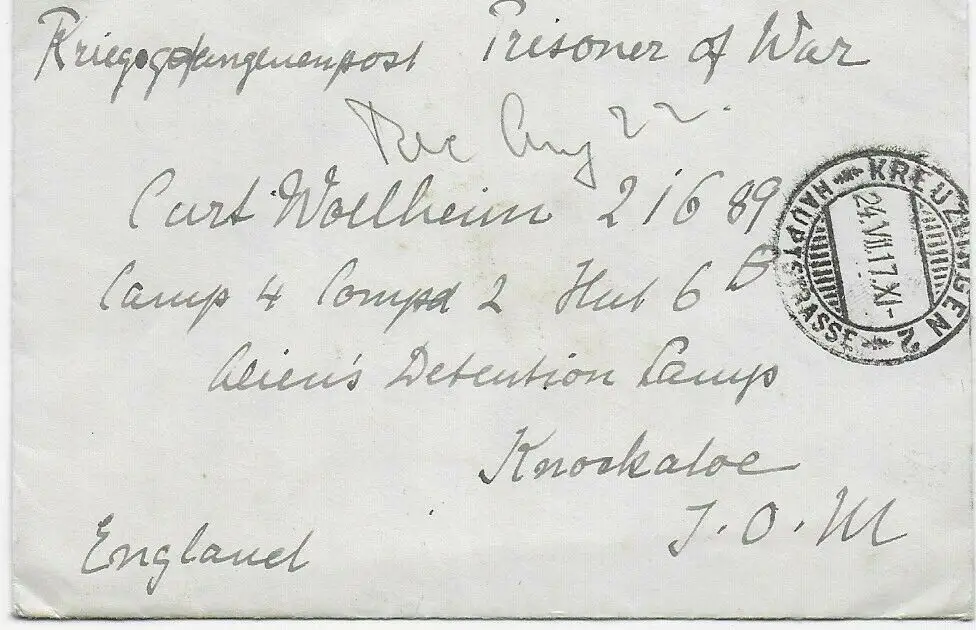 Kriegsgefangenenpost Prisoner of War
Rec Aug 22.
Curt Wollheim 21689
Camp 4 Compd 2 Hut 6 B
Alien's Detention Camp
Knockaloe
I.O.M
England
KREUZLINGEN 2
HAUPTSTRASSE
24.VII.17.XI-